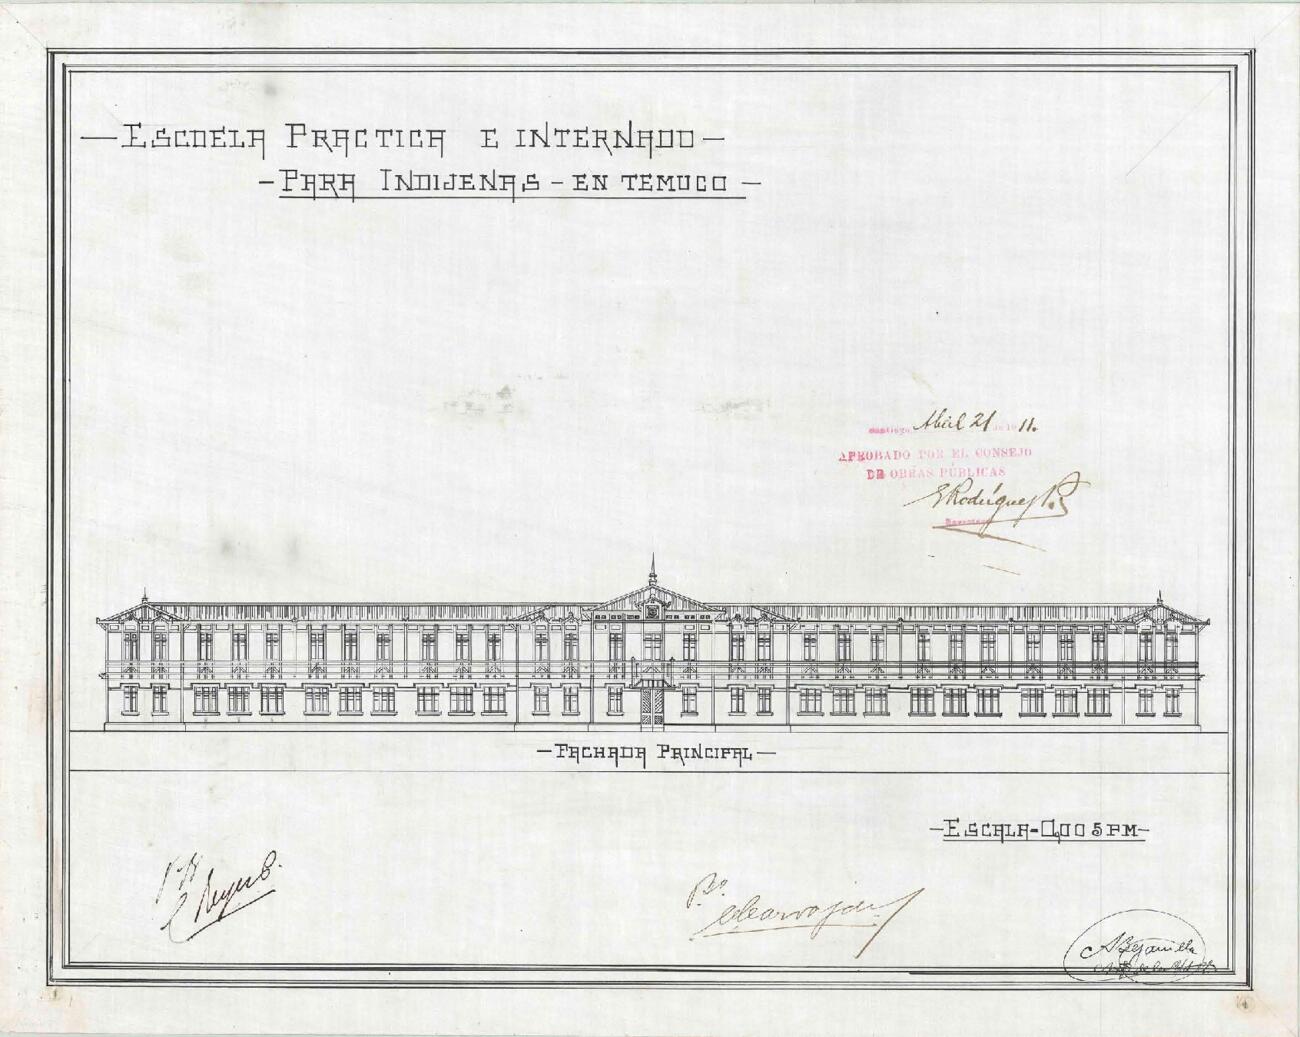 — ESCUELA PRACTICA E INTERNADO —
— PARA INDIJENAS — EN TEMUCO —
Santiago Abril 21 de 1911.
APROBADO POR EL CONSEJO
DE OBRAS PÚBLICAS
— FACHADA PRINCIPAL —
— ESCALA - 0,005 P M —